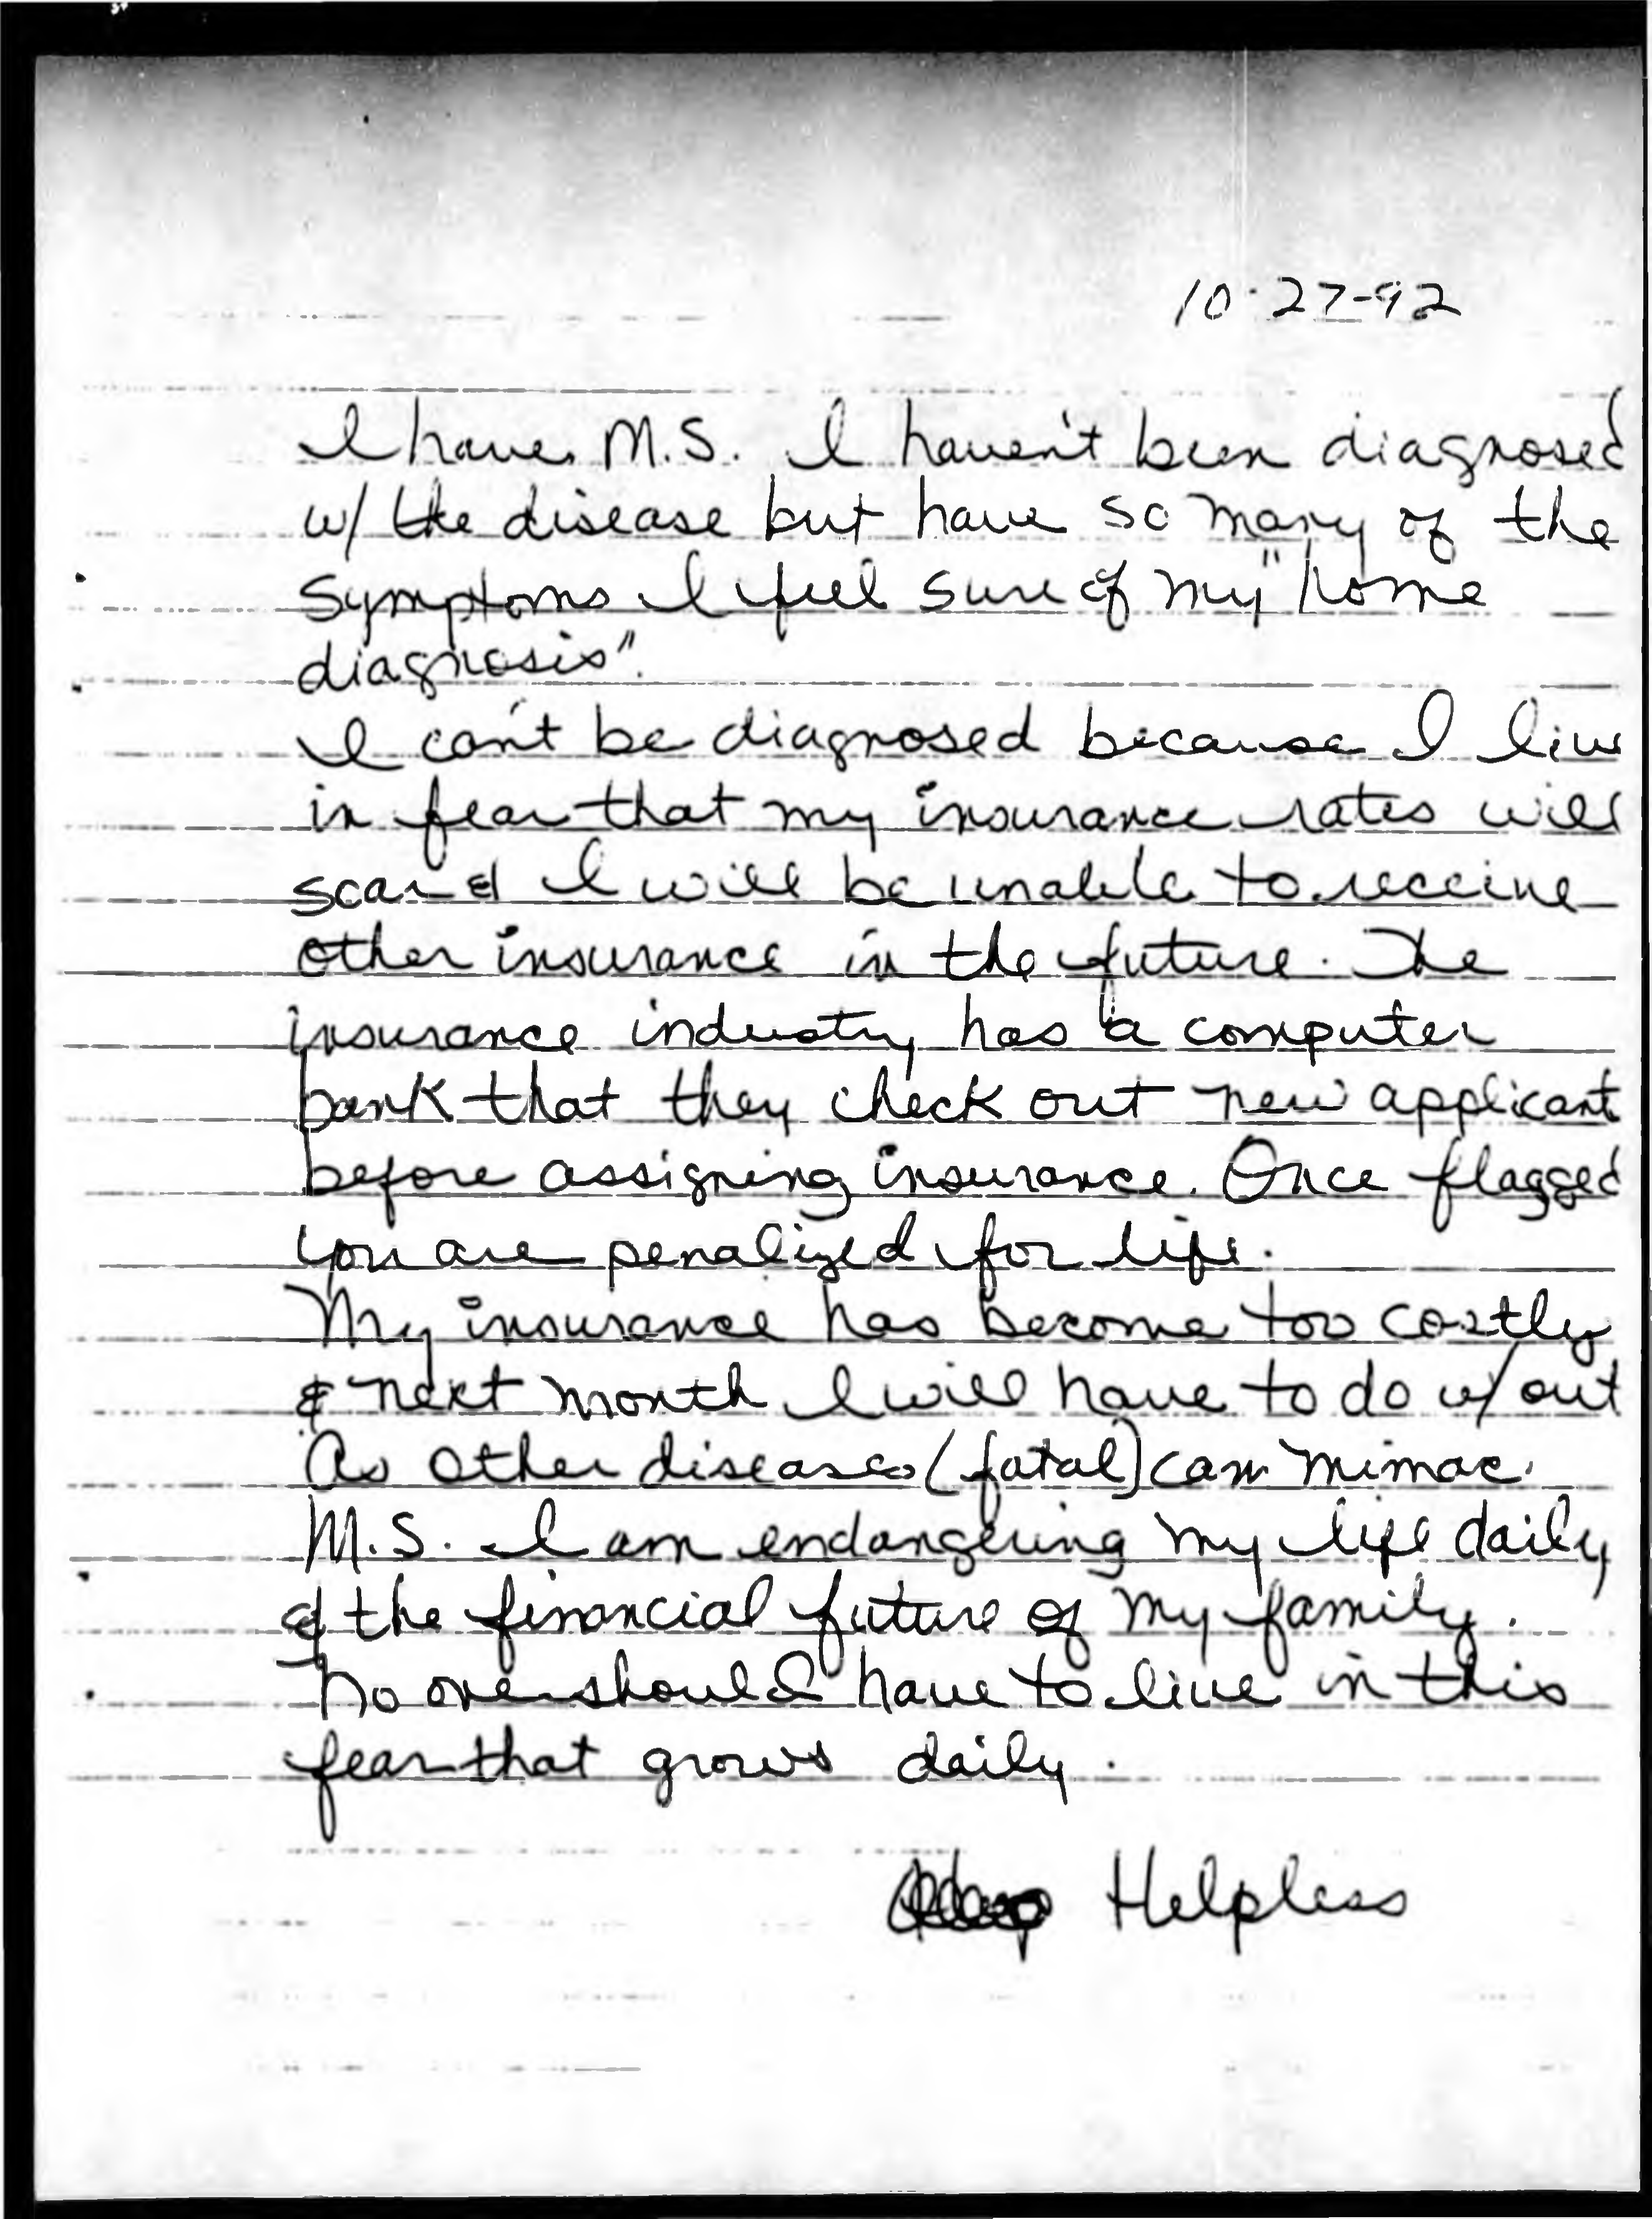 10-27-92
I have M.S. I haven't been diagnosed
w/ the disease but have so many of the
symptoms I feel sure of my "home
diagnosis".
I can't be diagnosed because I live
in fear that my insurance rates will
soar & I will be unable to receive
other insurance in the future. The
insurance industy has a computer
bank that they check out new applicant
before assigning insurance. Once flagged
you are penalized for life.
My insurance has become too costly
& next month I will have to do w/out
As other diseases (fatal) can mimac
M.S. I am endangering my life daily
& the financial future of my family.
No one should have to live in this
fear that grows daily.
Helpless